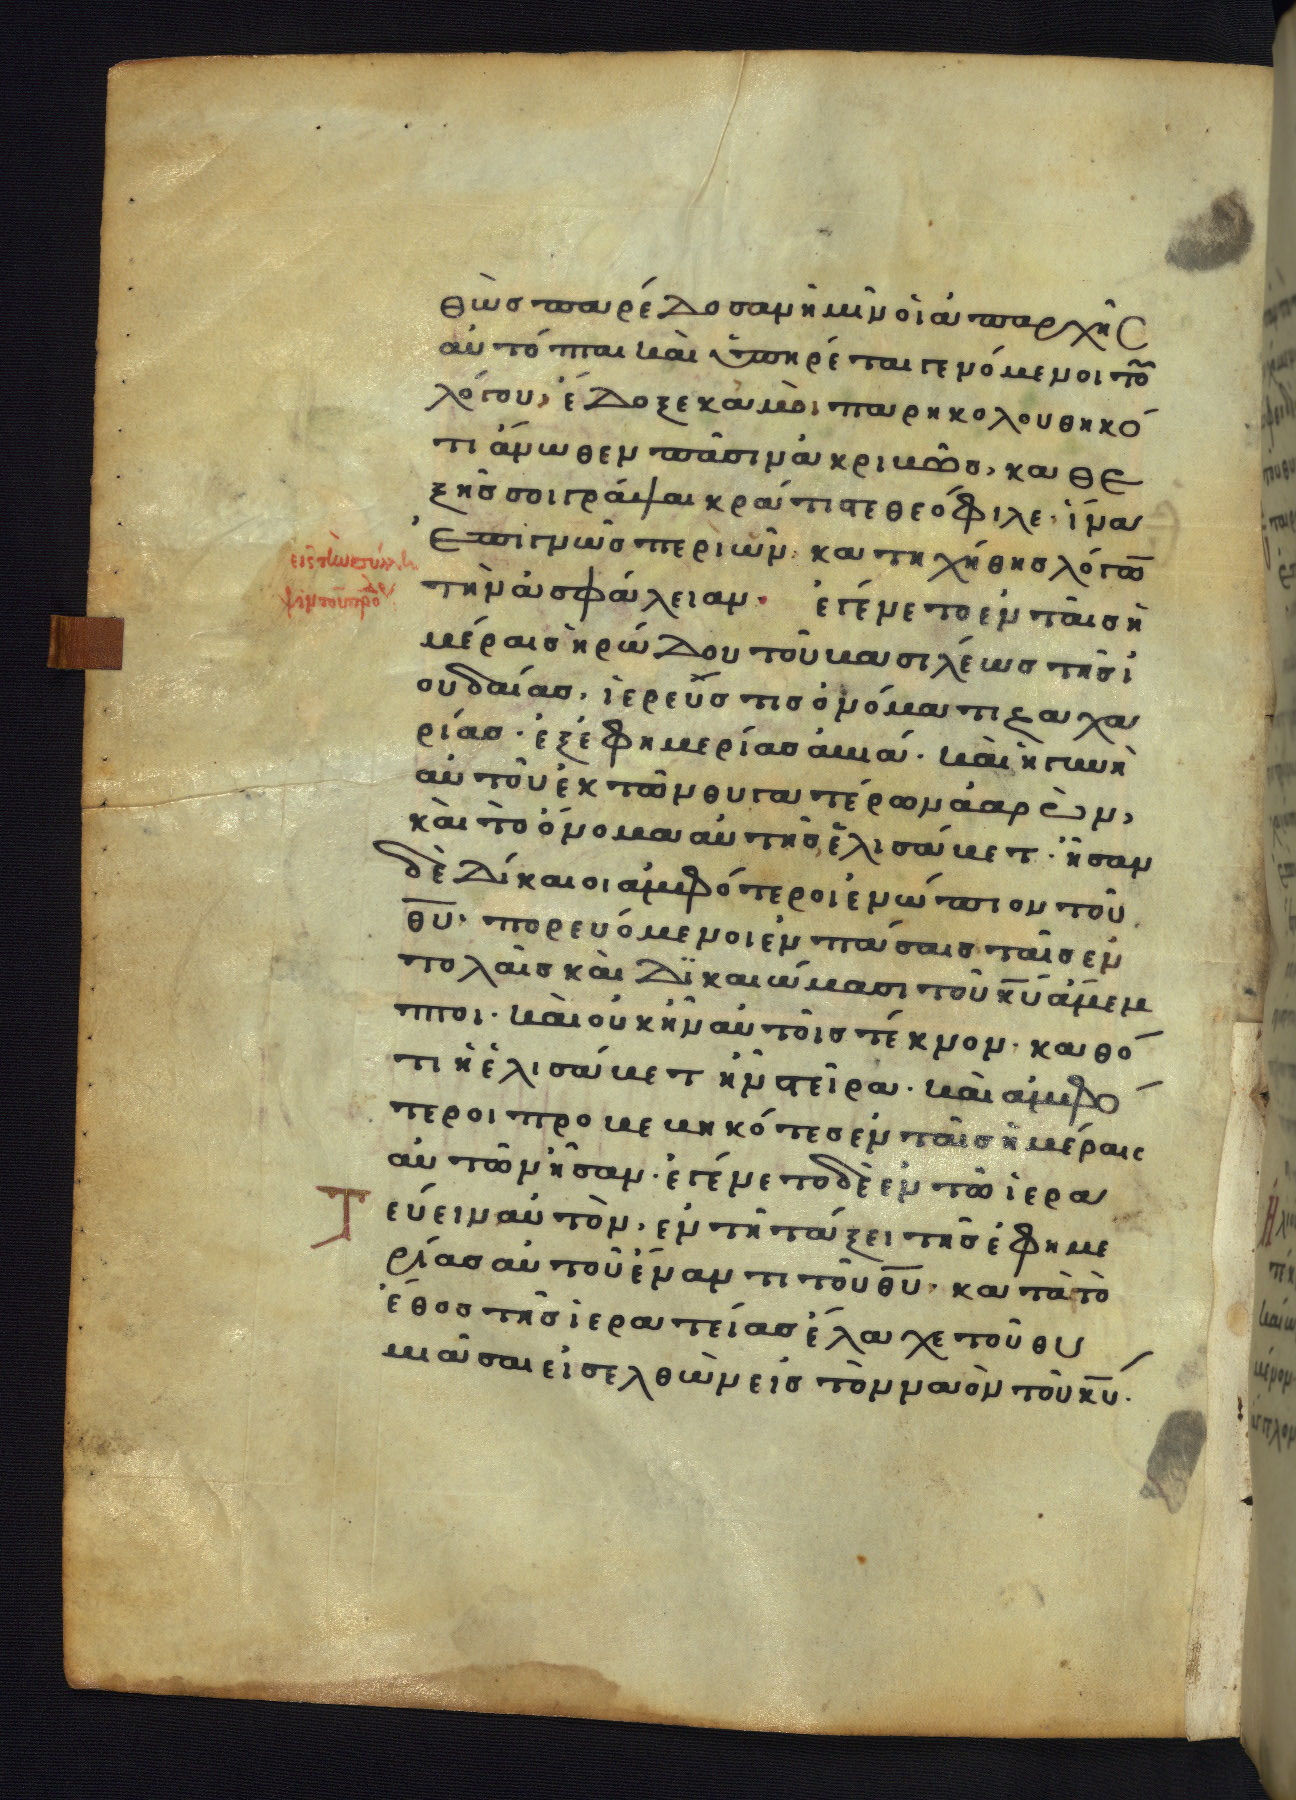 θὼσ παρέδοσαν ἡμῖν οἱ ἀπαρχῆσ
αὐτόπται καὶ ὑπηρέται γενόμενοι τοῦ
λόγου, ἔδοξε κἀμοὶ παρηκολουθηκό
τι ἄνωθεν πᾶσιν ἀκριβῶσ, καθε
ξῆσ σοι γράψαι κράτιστε θεόφιλε· ἵνα
ἐπιγνῶσ περὶ ὧν κατηχήθησ λόγων
τὴν ἀσφάλειαν. ἐγένετο ἐν ταῖσ ἡ
μέραισ ἡρώδου τοῦ βασιλέωσ τῆσ ἰ
ουδαίασ, ἱερεύσ τισ ὀνόματι ζαχα
ρίασ· ἐξ ἐφημερίασ ἀβιά· καὶ ἡ γυνὴ
αὐτοῦ ἐκ τῶν θυγατέρων ἀαρὼν,
καὶ τὸ ὄνομα αὐτῆσ ἐλισάβετ· ἦσαν
δὲ δίκαιοι ἀμφότεροι ἐνώπιον τοῦ
θ̅υ̅· πορευόμενοι ἐν πάσαισ ταῖσ ἐν
τολαῖσ καὶ δικαιώμασι τοῦ κ̅υ̅ ἄμεμ
πτοι· καὶ οὐκ ἦν αὐτοῖσ τέκνον· καθό
τι ἡ ἐλισάβετ ἦν στεῖρα· καὶ ἀμφό
τεροι προβεβηκότεσ ἐν ταῖσ ἡμέραισ
αὐτῶν ἦσαν· ἐγένετο δὲ ἐν τῶ ἱερα
τεύειν αὐτὸν, ἐν τῆ τάξει τῆσ ἐφημε
ρίασ αὐτοῦ ἔναντι τοῦ θ̅υ̅· κατὰ τὸ
ἔθοσ τῆσ ἱερατείασ ἔλαχε τοῦ θυ
μιᾶσαι εἰσελθὼν εἰσ τὸν ναὸν τοῦ κ̅υ̅.